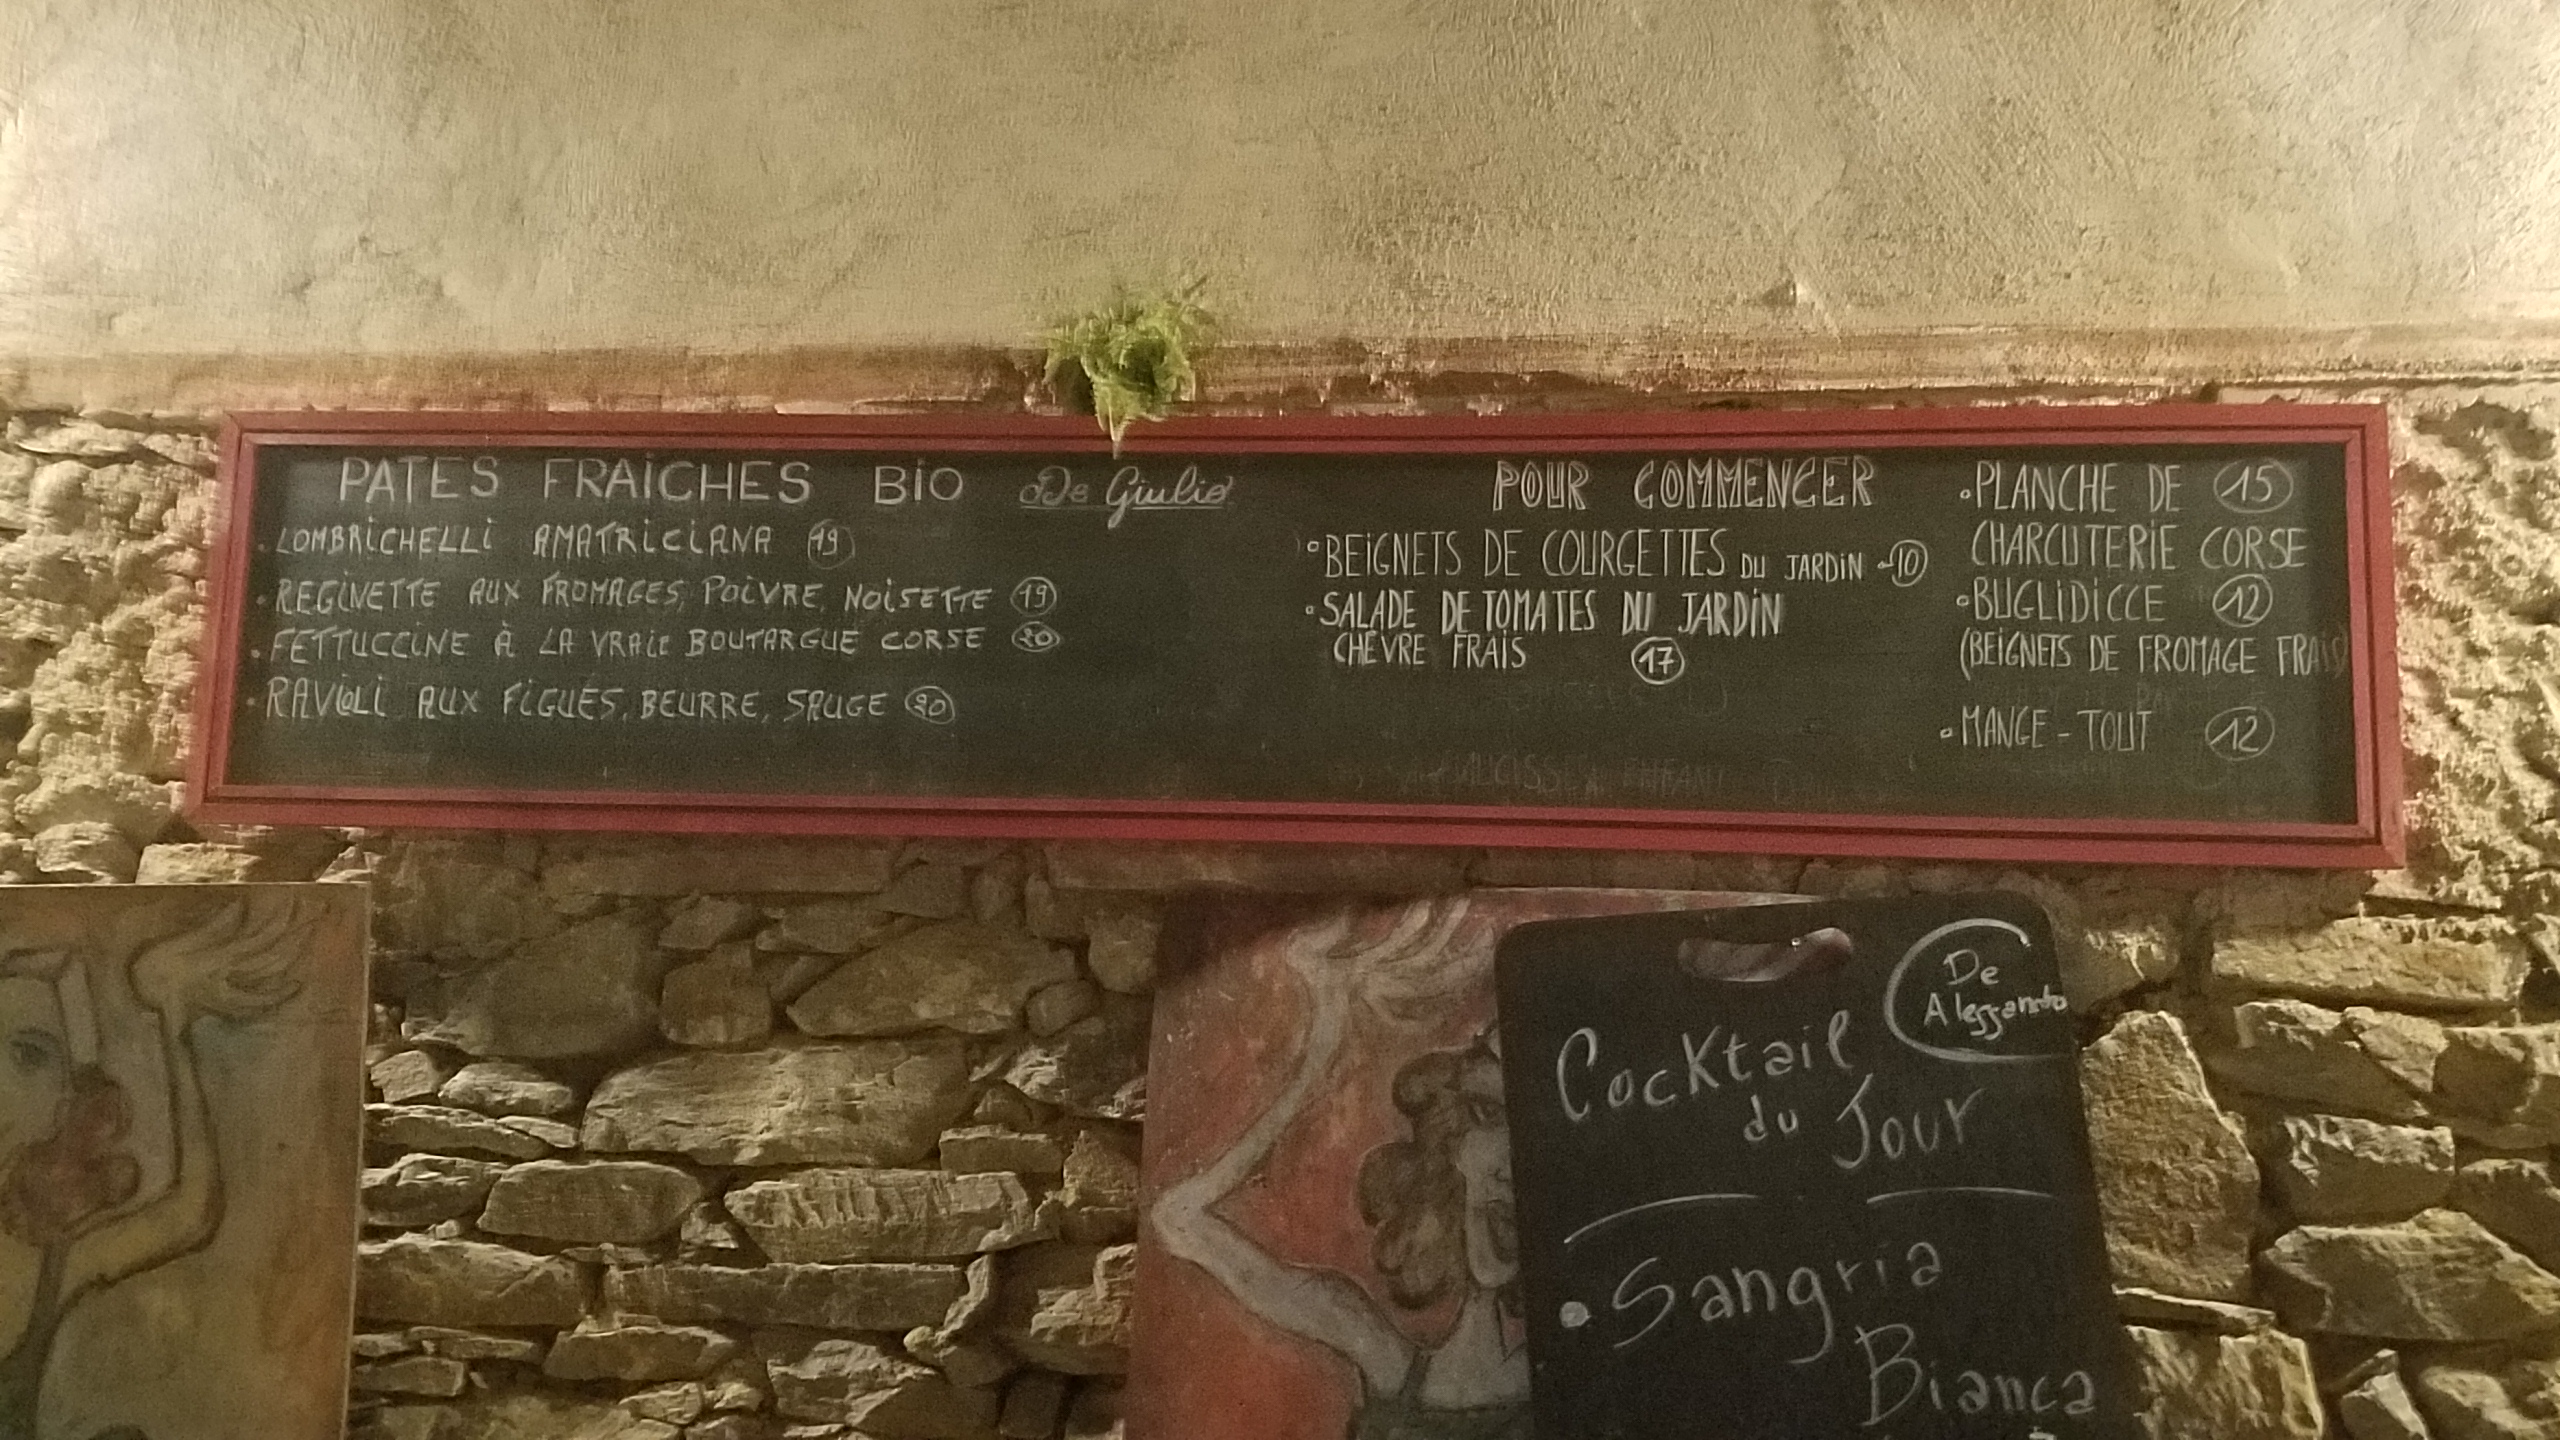 PATES FRAICHES BIO De Giulio
• LOMBRICHELLI AMATRICIANA 19
• REGINETTE AUX FROMAGES, POIVRE, NOISETTE 19
• FETTUCCINE À LA VRAIE BOUTARGUE CORSE 20
• RAVIOLI AUX FIGUES, BEURRE, SAUGE 20
POUR COMMENCER
• BEIGNETS DE COURGETTES DU JARDIN - 10
• SALADE DE TOMATES DU JARDIN
CHEVRE FRAIS 17
• PLANCHE DE 15
CHARCUTERIE CORSE
• BUGLIDICCE 12
(BEIGNETS DE FROMAGE FRAIS
• MANGE - TOUT 12
De
Alessandro
Cocktail
du Jour
• Sangria
Bianca